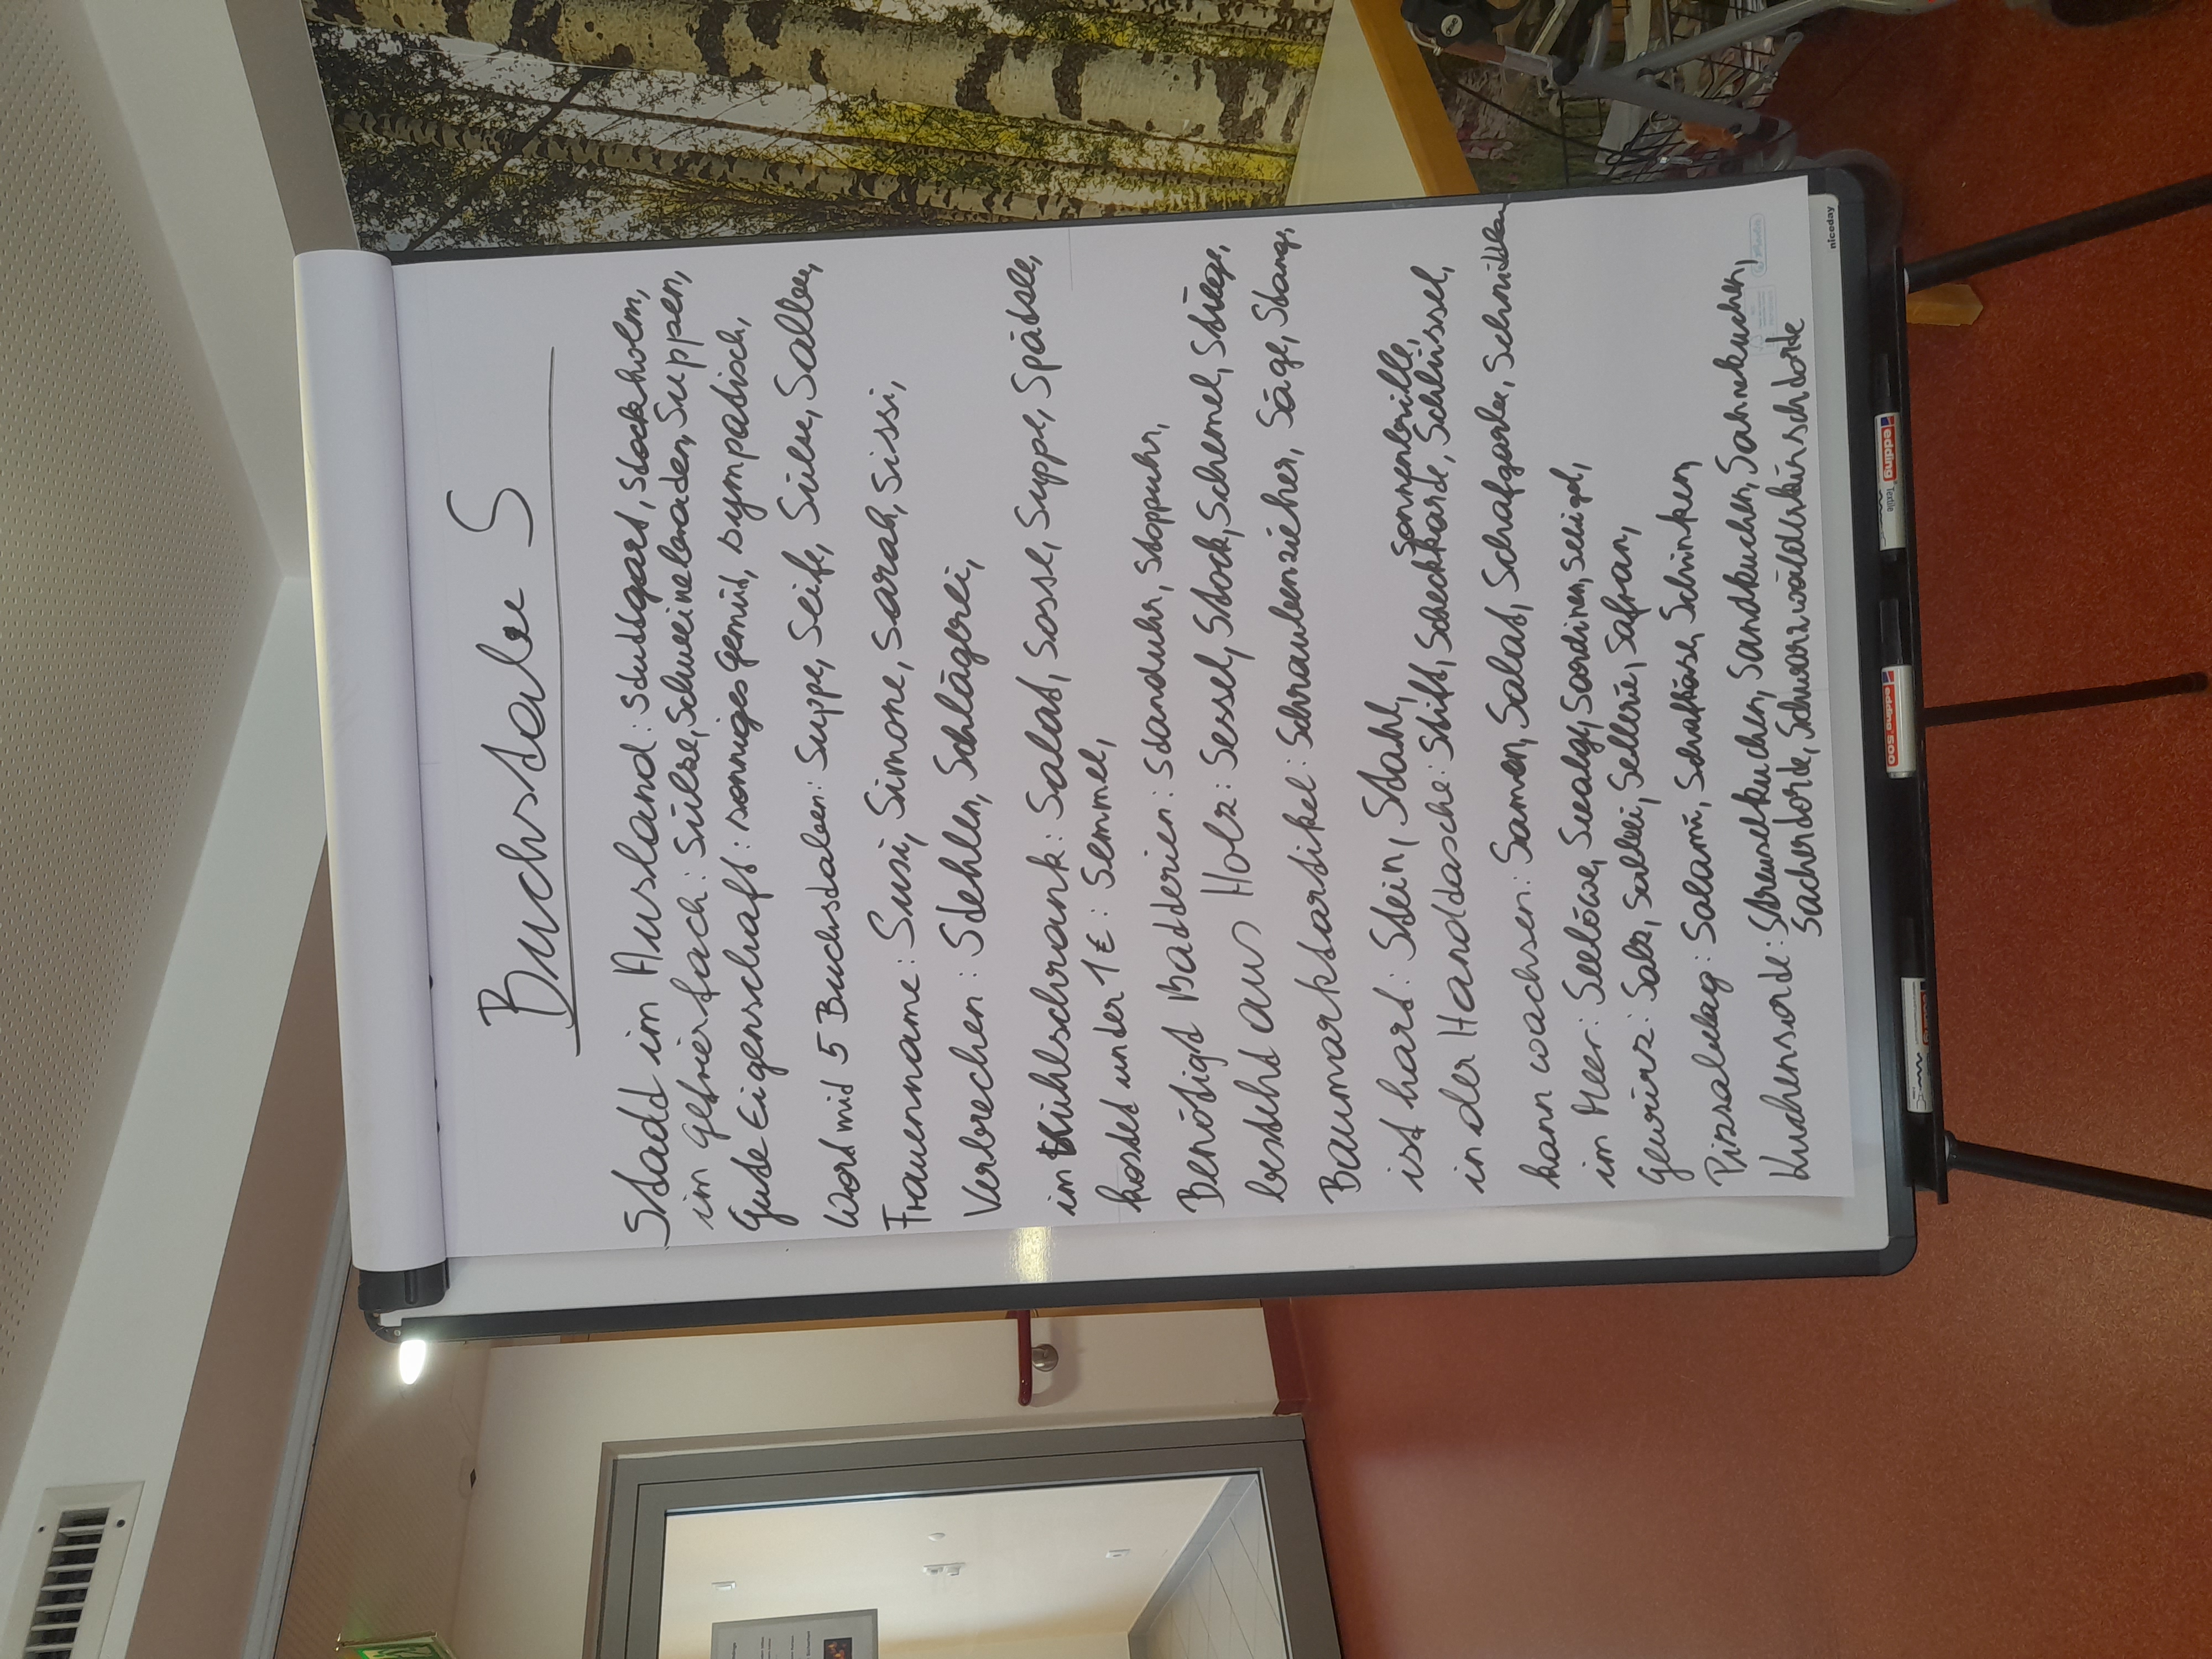 Buchstabe S
Stadt im Ausland: Stuttgart, Stockholm,
im Gefrierfach: Sülze, Schweinebraten, Suppen,
Gute Eigenschaft: sonniges Gemüt, sympatisch,
Wort mit 5 Buchstaben: Suppe, Seife, Silbe, Salbe,
Frauenname: Susi, Simone, Sarah, Sissi,
Verbrechen: Stehlen, Schlägerei,
im Kühlschrank: Salat, Sosse, Suppe, Spätzle,
kostet unter 1€: Semmel,
Benötigt Batterien: Standuhr, Stoppuhr,
besteht aus Holz: Sessel, Stock, Schemel, Stiege,
Baumarktartikel: Schraubenzieher, Säge, Stange,
ist hart: Stein, Stahl,
in der Handtasche: Stift, Scheckkarte, Schlüssel, Sonnenbrille,
kann wachsen: Samen, Salat, Schafgarbe, Schnittlauch
im Meer: Seelöwe, Seealge, Sardinen, Seeigel,
Gewürz: Salz, Salbei, Sellerie, Safran,
Pizzabelag: Salami, Schafkäse, Schinken,
Kuchensorte: Streuselkuchen, Sandkuchen, Sahnekuchen,
Sachertorte, Schwarzwälderkirschtorte
niceday
edding
Textile
edding 500